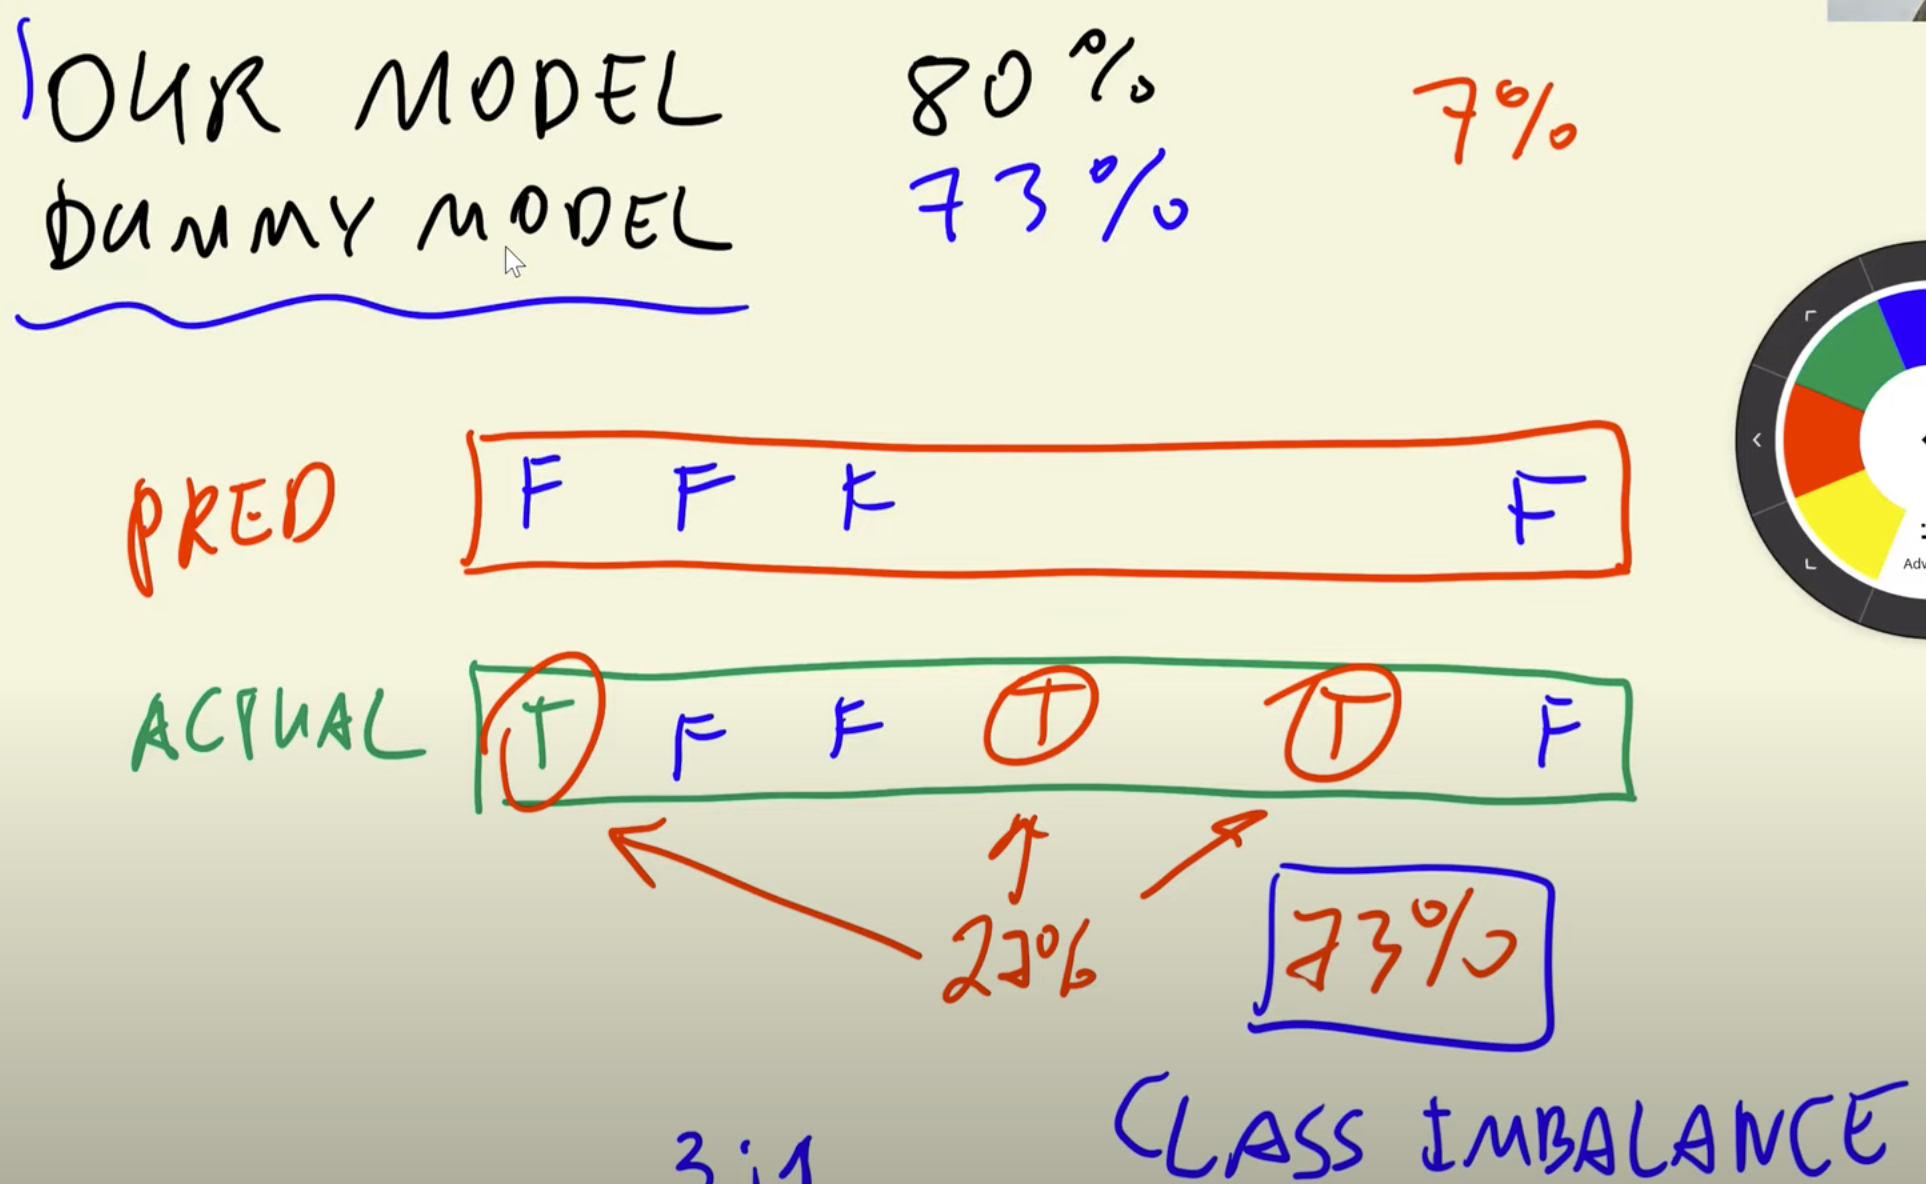 OUR MODEL 80% 7%
DUMMY MODEL 73%
PRED F F F F
ACTUAL T F F T T F
27%
73%
CLASS IMBALANCE
3:1